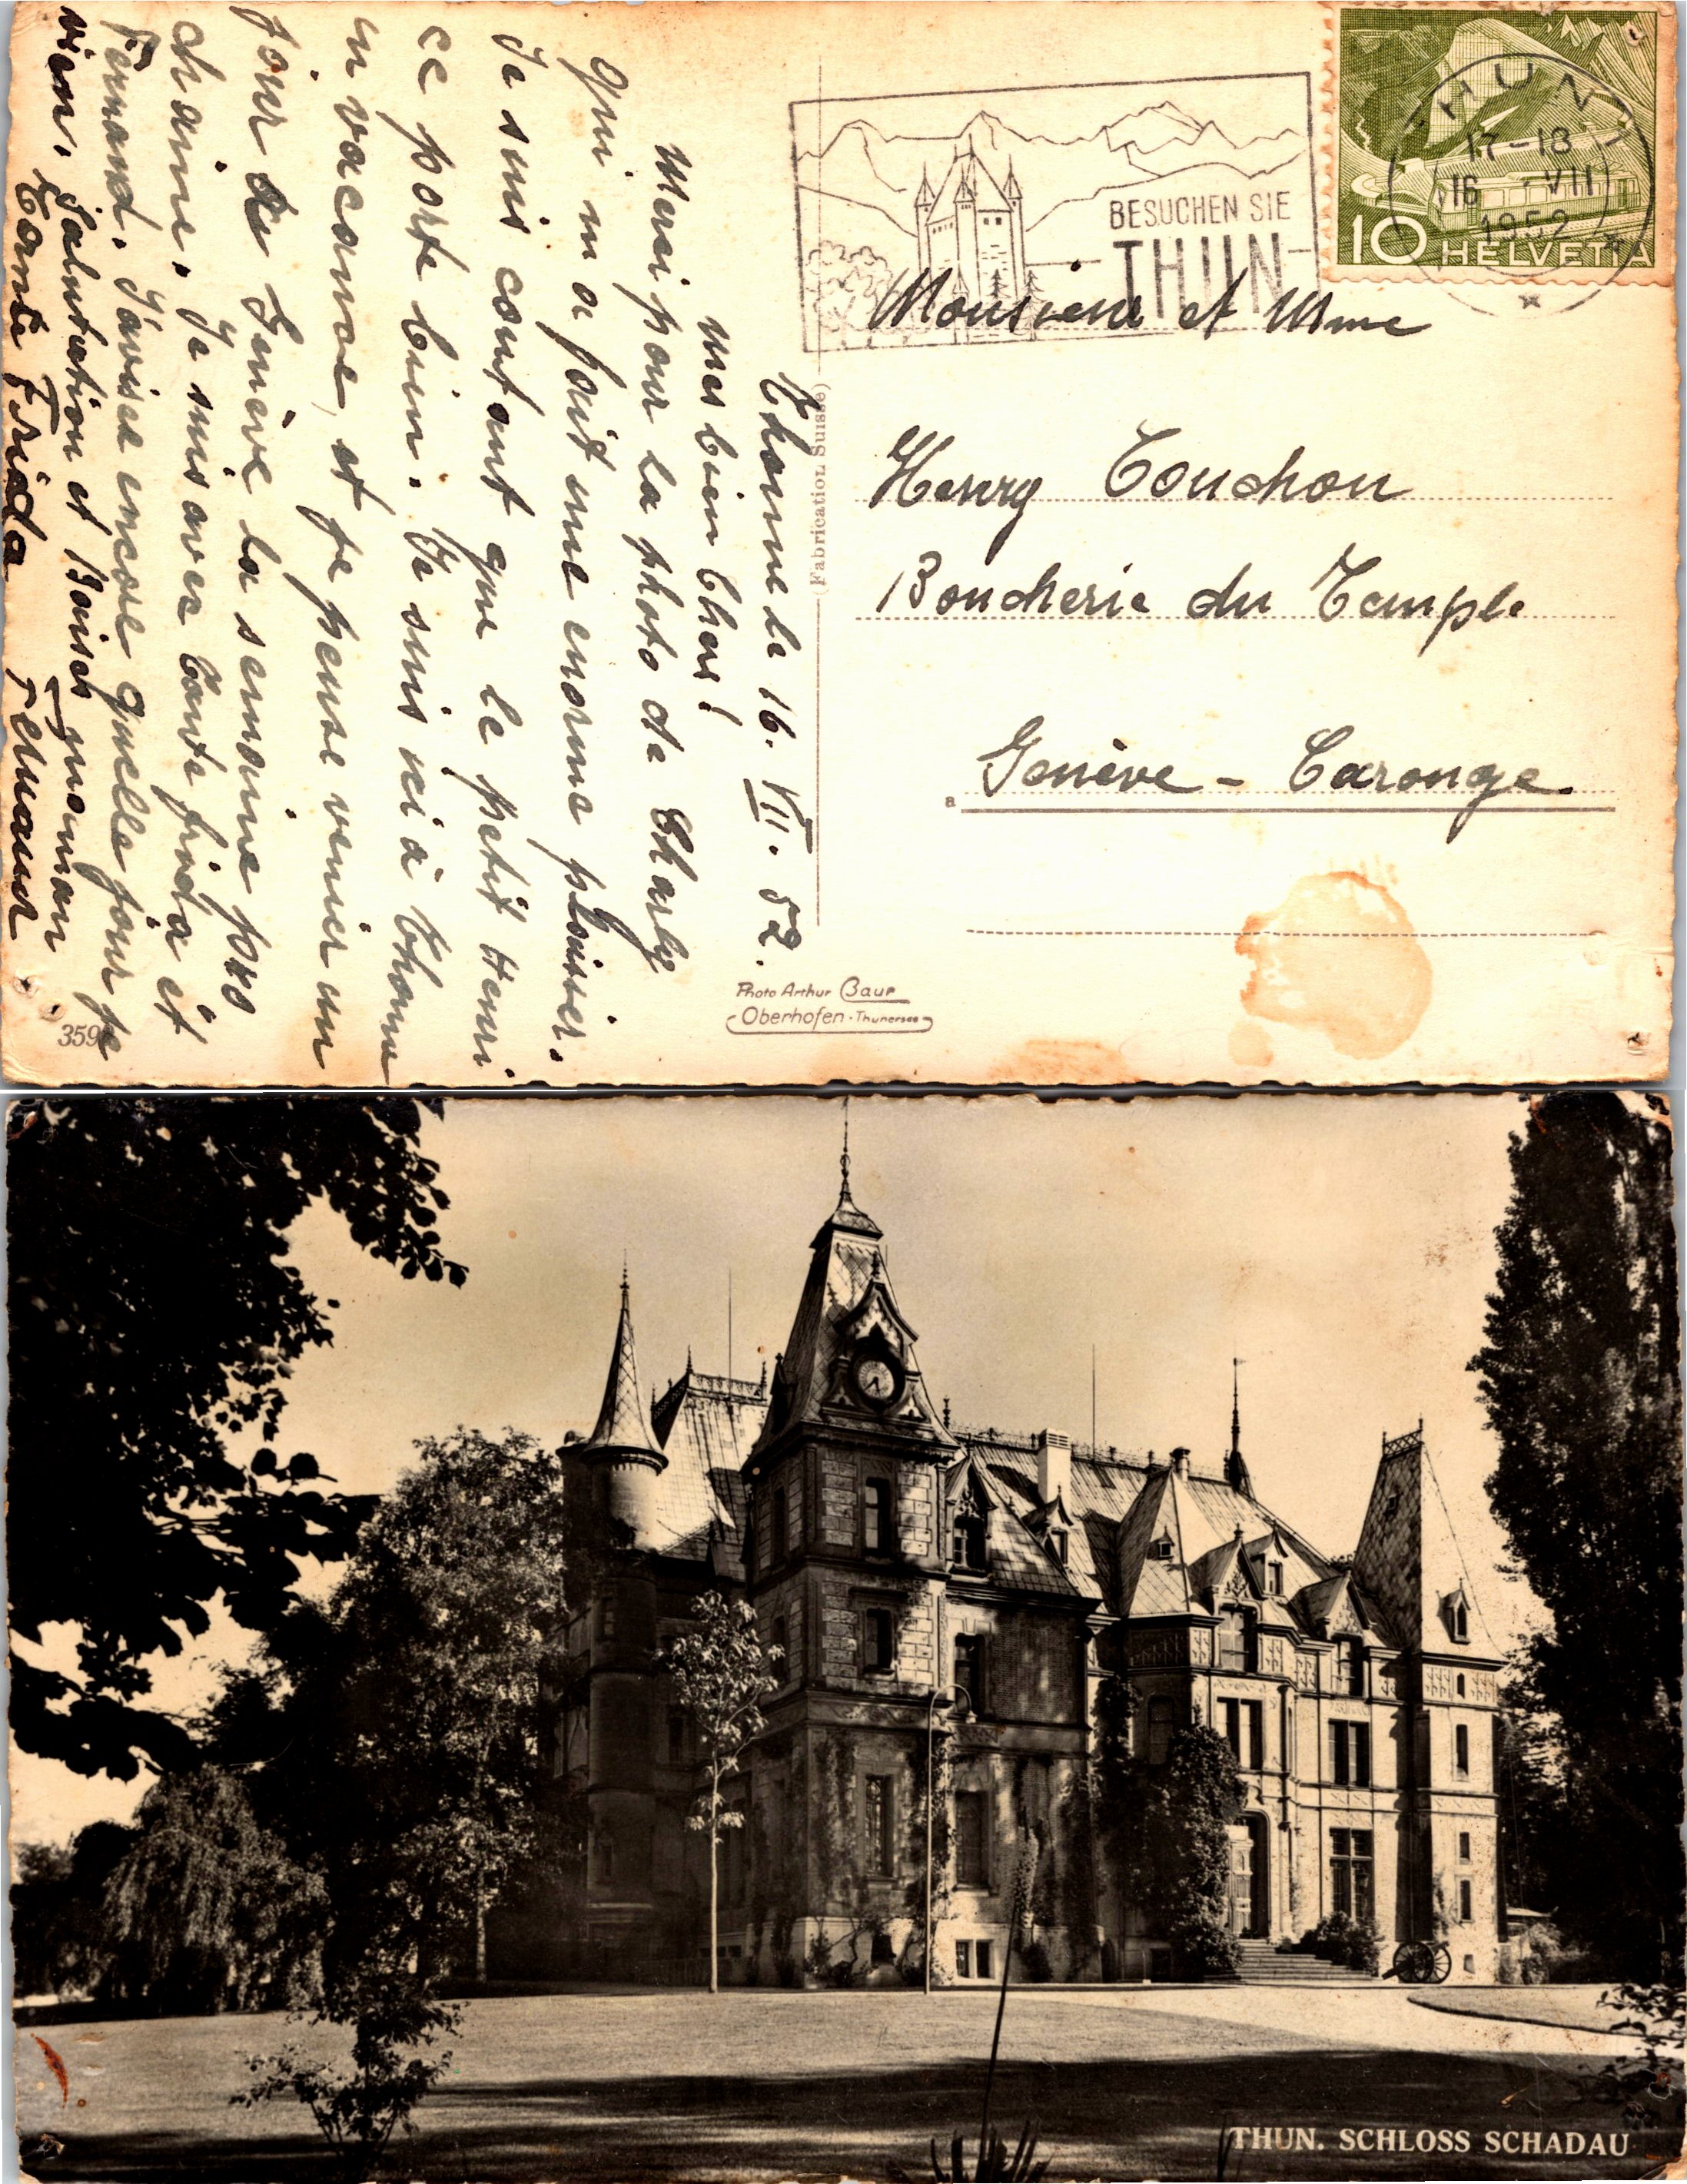 Thoune le 16. VII. 52.
Mes bien Chers!
Mersi pour la photo de Charly
qui m a fait une enorme plaisser.
Je suis contant que le petit Henri
ce porte bien. Je suis ici à Thoune
en vacance, et je pense venier un
jour de Genève la semaine pro
chaine. Je suis avec Tante frida et
Fernand. J'avise encore quelle jour je
vien. Salutation et Baiser maman
Tante Frida
BESUCHEN SIE
THUN
THUN 1
17-18
16 VII
1952
10 HELVETIA
Monsieur et Mme
Henry Touchon
Boucherie du Temple
a Genève - Carouge.
(Fabrication Suisse)
Photo Arthur Baur
Oberhofen-Thunersee
THUN. SCHLOSS SCHADAU